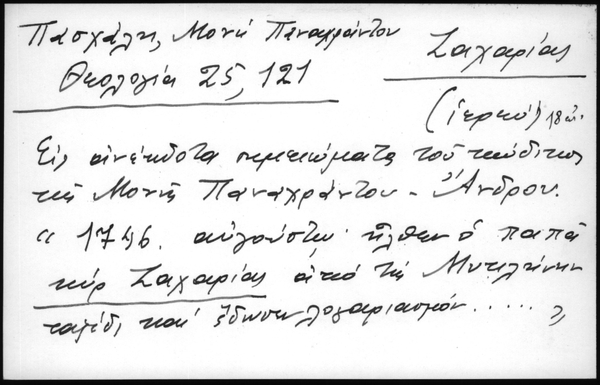 Πασχάλη, Μονή Παναχράντου
Ζαχαρίας
Θεολογία 25, 121
(ἱερεύς) 18 αἰ.
Εἰς ἀνέκδοτα σημειώματα τοῦ κώδικος
τῆς Μονῆς Παναχράντου - Ἄνδρου.
“ 1746. αὐγούστου ἦλθεν ὁ παπᾶ
κύρ Ζαχαρίας ἀπό τή Μυτιλήνην
ταξίδι καί ἔδωσεν λογαριασμόν . . . . . ”